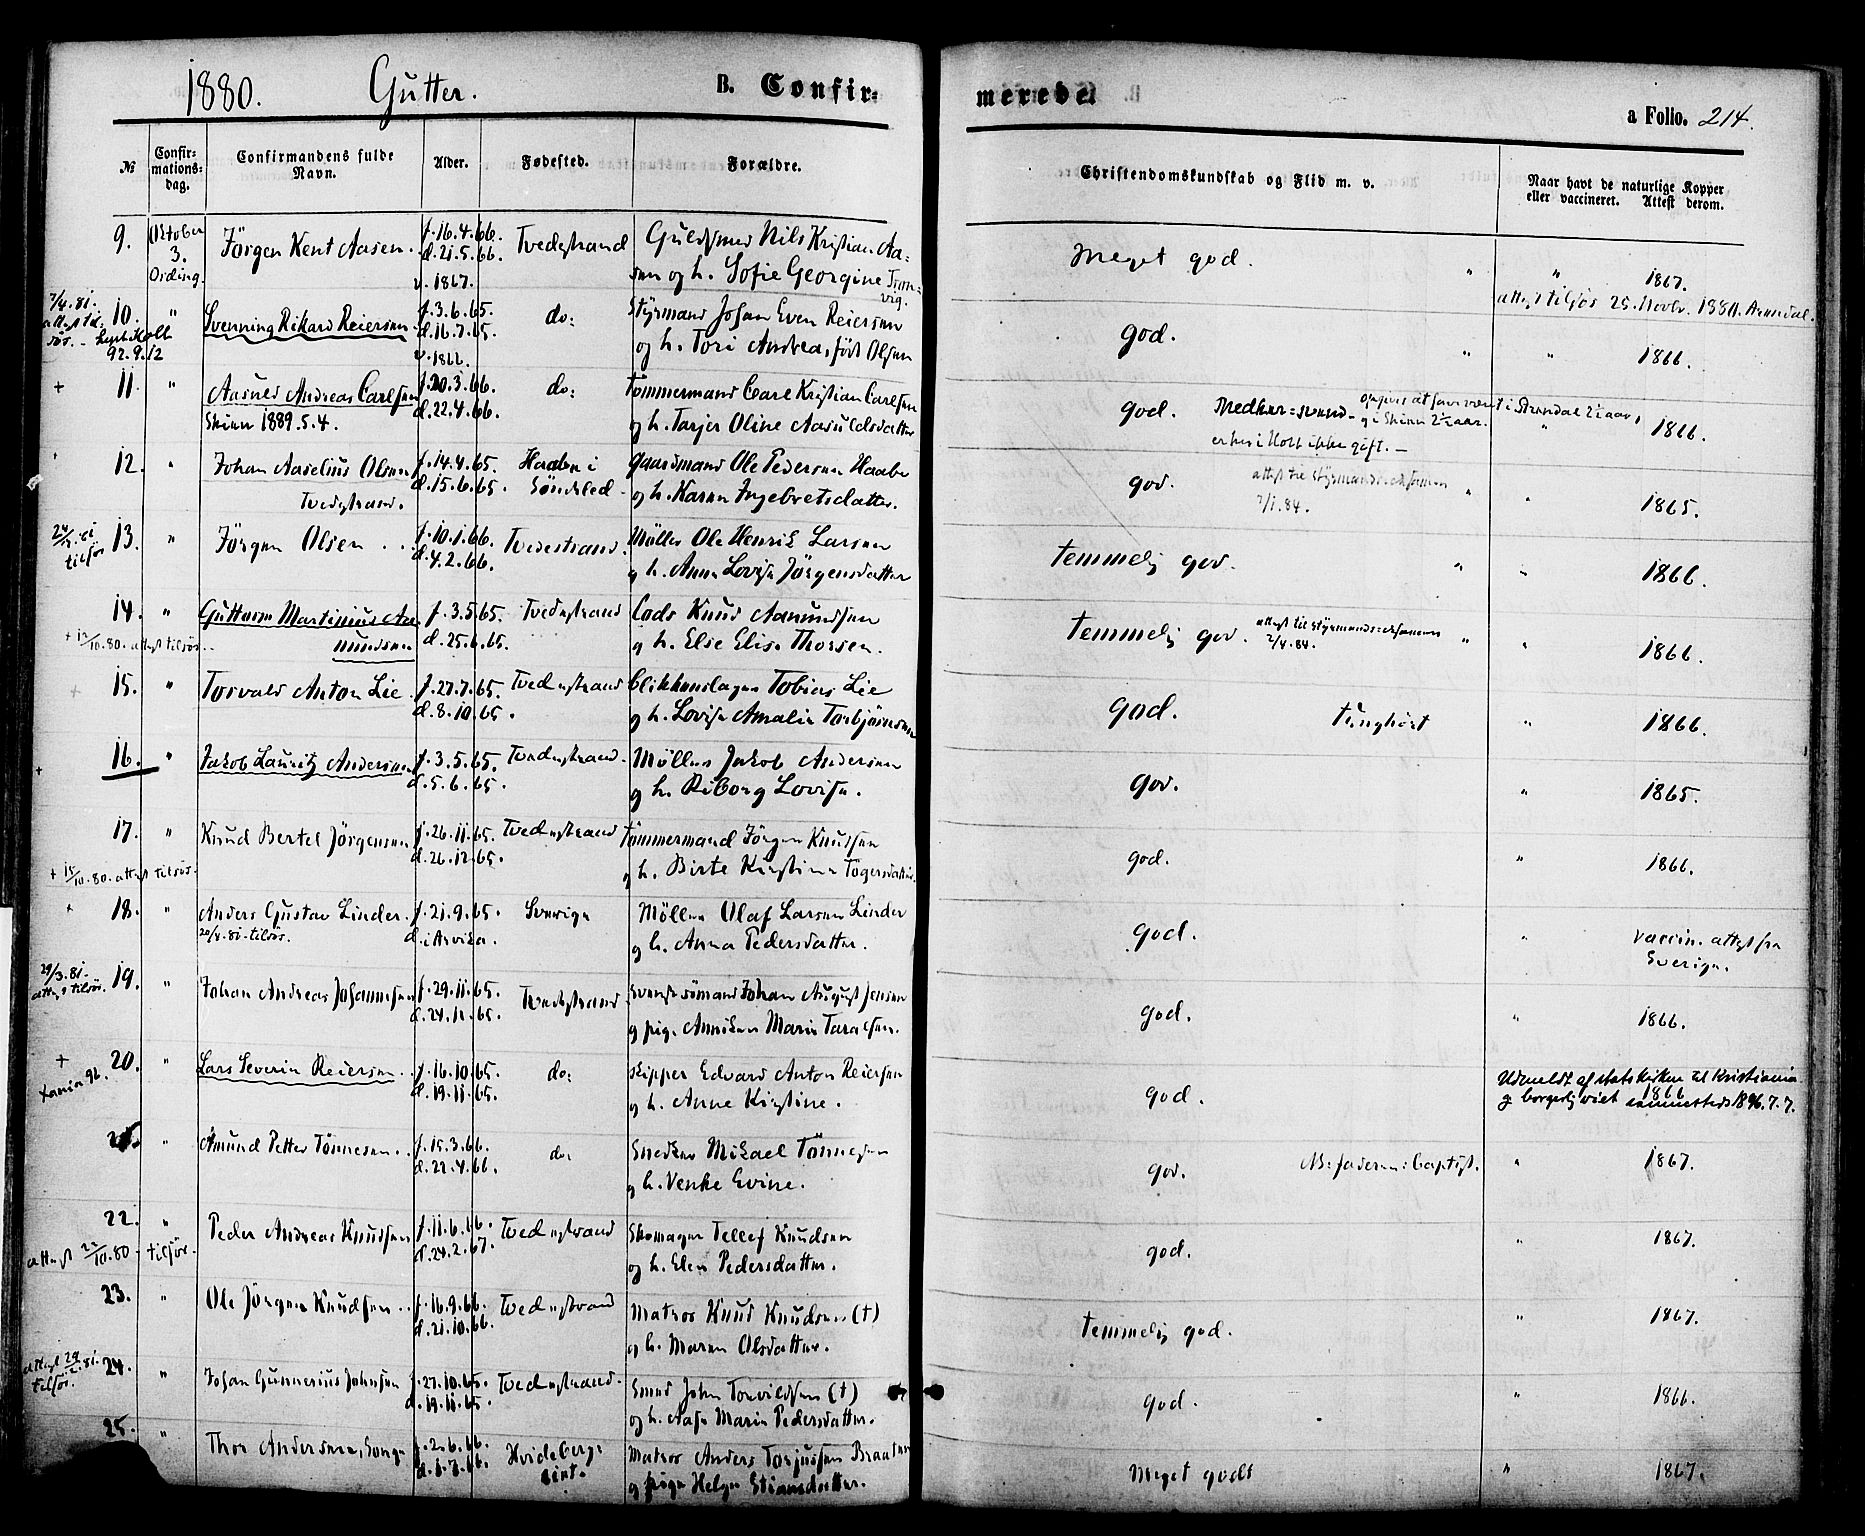 1880. Gutter. B. Confir-
meredе.
a Folio. 214.
№ Confirmations-dag. Confirmandens fulde Navn. Alder. Fødested. Forældre.
Christendomskundskab og Flid m. v. Naar havt de naturlige Kopper eller vaccineret. Attest derom.
9. October Jörgen Kent Aasen. f. 16.4.66. Tvedestrand Guldsmed Nils Kristian Aa-
3. d. 21.5.66. sen og h. Sofie Georgine
Ording. v. 1867.
Meget god. " " 1867.
attest tilsøs 25. Novbr. 1880. Arendal.
10. " Svenning Rikard Reiersen f. 3.6.65. do: Styrmand Johan Even Reiersen
d. 16.7.65. og h. Tori Andrea, født Olsen
v. 1866
god. " " 1866.
11. " Aasuld Andreas Carlsen f. 20.3.66. do: Tømmermand Carl Kristian Carlsen
Skien 1889.5.4. d. 22.4.66. og h. Tarjer Oline Aasuldsdatter
god. 1866.
er her i Holt ikke gift. —
12. " Johan Aaselius Olsen f. 14.4.65. i Gaardmand Ole Pedersen
Tvedestrand. d. 15.6.65. Søndeled. og h. Karen Ingebretsdatter.
god. attest til Styrmandseksamen " " 1865.
2/1.84.
13. " Jörgen Olsen f. 10.1.66. Tvedestrand. Møller Ole Henrik Larsen
tilsøs d. 4.2.66. og h. Anna Lovise Jørgensdatter
temmelig god. " " 1866.
14. " Guttorm Martinius Aa- f. 3.5.65. Tvedestrand Lods Knud Aamundsen
mundsen d. 25.6.65. og h. Else Elise Thorsen.
+ 12/10.80. attest tilsøs.
temmelig god. attest til styrmandseksamen " " 1866.
2/4.84.
15. " Torvald Anton Lie f. 27.7.65. Tvedestrand Blikkenslager Tobias Lie
d. 8.10.65. og h. Lovise Amalie Torbjørnsen
god. tunghørt " 1866.
16. " Jakob Lauritz Andersen f. 3.5.65. Tvedestrand. Møller Jakob Andersen
d. 5.6.65. og h. Riborg Lovise.
god. " 1865.
17. " Knud Bertel Jörgensen f. 26.11.65. Tvedestrand Tømmermand Jörgen Knudsen
d. 26.12.65. og h. Birte Kirstine
attest tilsøs.
god. " 1866.
18. " Anders Gustav Linder. f. 21.9.65. Sverige Møller Olaf Larsen Linder
20/4.81. tilsøs. d. i Arvika. og h. Anna Pedersdatter.
god. " Vaccin. attest fra
Sverige.
29/3.81. attest tilsøs. 19. " Johan Andreas Johannesen f. 29.11.65. Tvedestrand Svensk sømand Johan August Jensen
d. 24.12.65. og pige Anniken Marie
god. " 1866.
20. " Lars Severin Reiersen f. 16.10.65. do: Skipper Edvard Anton Reiersen
d. 19.11.65. og h. Anne Kirstine.
god. Udmeldt af statskirken til Kristiania
1866
g borgerlig viet sammesteds 1896.7.7.
21. " Amund Petter Tønnesen f. 15.3.66. do: Snedker Mikael Tønnesen
d. 22.4.66. og h. Venke Evine.
god. NB: faderen: Baptist. " 1867.
22. " Peder Andreas Knudsen f. 11.6.66. Tvedestrand Skomager Tellef Knudsen
attest 22/10.80 tilsøs. d. 24.2.67. og h. Elen Pedersdatter.
god. " 1867.
23. " Ole Jörgen Knudsen f. 16.9.66. Tvedestrand Matros Knud Knudsen (†)
d. 21.10.66. og h. Maren Olsdatter.
temmelig god. " 1867.
24. " Johan Gunnerius Johnsen f. 27.10.65. Tvedestrand. Smed John Torvildsen (†)
tilsøs. d. 19.11.65. og h. Aase Marie Pedersdatter.
god. " 1866.
25. " Thor Andersen, Songe f. 2.6.66. Hvideberg- Matros Anders Torjussen Braaten
d. 1.7.66. og pige Helge Stiansdatter.
Meget godt " 1867.